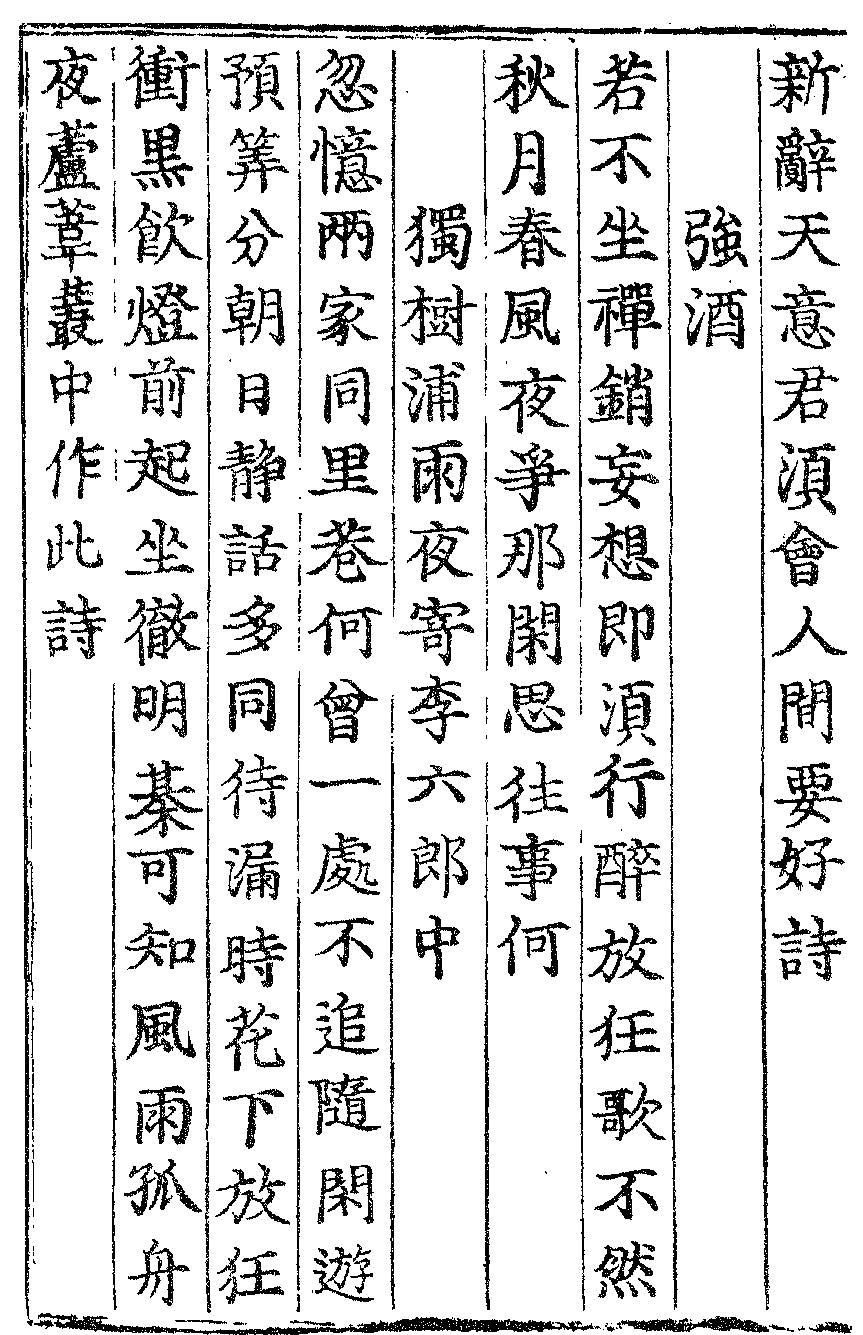 新辭天意君須會人間要好詩
強酒
若不坐禪銷妄想即須行醉放狂歌不然
秋月春風夜爭那閑思往事何
獨樹浦雨夜寄李六郎中
忽憶兩家同里巷何曾一處不追隨閑遊
預筭分朝日静話多同待漏時花下放狂
衝黒飲燈前起坐徹明棊可知風雨孤舟
夜蘆葦叢中作此詩